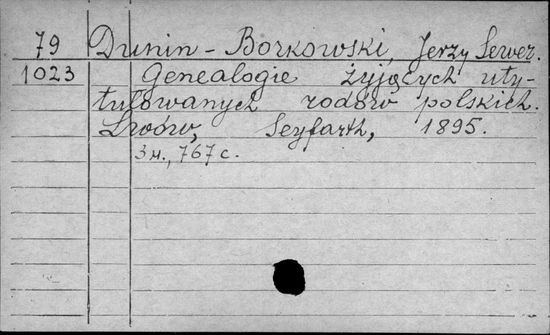 79 Dunin-Borkowski, Jerzy Sewer.
1023 Genealogie żyjących uty-
tułowanych rodów polskich.
Lwów, Seyfarth, 1895.
3 н., 767 с.